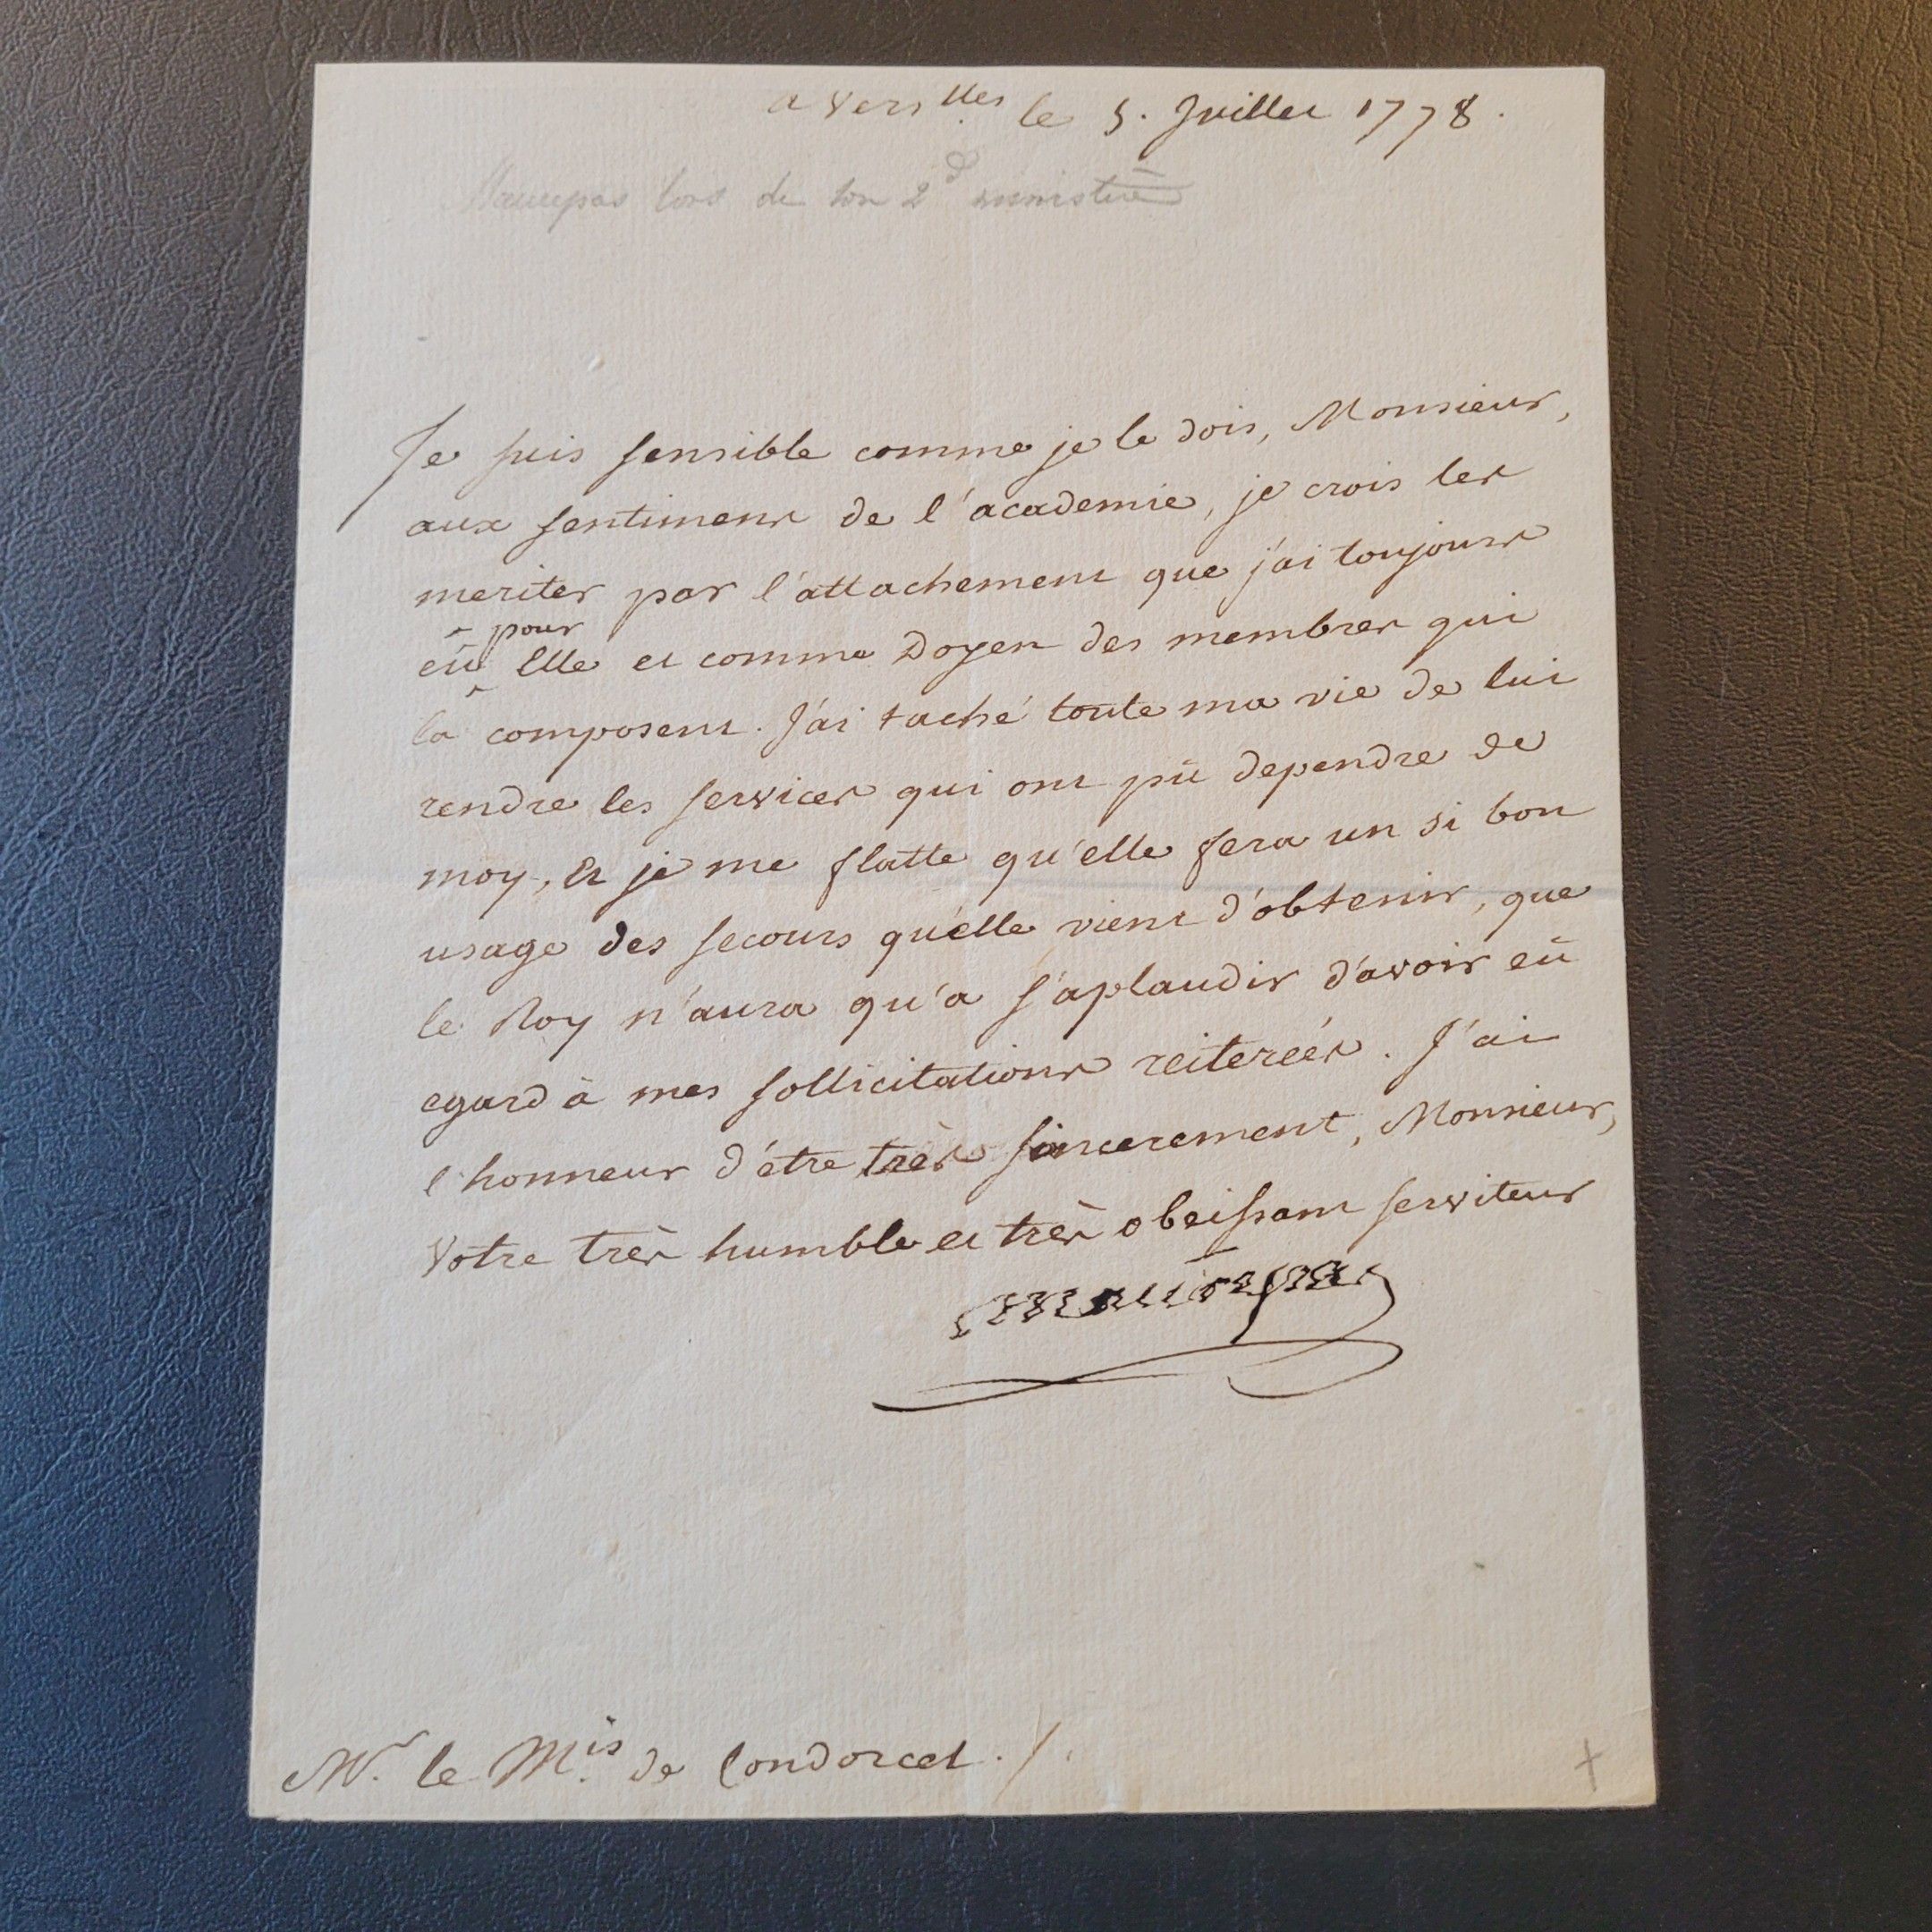 a Vers.lles le 5. Juillet 1778.
Maurepas lors de son 2d ministère
Je suis sensible comme je le dois, Monsieur,
aux sentimens de l'academie, je crois les
meriter par l'attachement que j'ai toujours
eû pour Elle et comme Doyen des membres qui
la composent. J'ai taché toute ma vie de lui
rendre les services qui ont pû dependre de
moy, Et je me flatte qu'elle fera un si bon
usage des secours qu'elle vient d'obtenir, que
le Roy n'aura qu'a s'aplaudir d'avoir eû
egard à mes sollicitations reiterées. J'ai
l'honneur d'étre très sincerement, Monsieur,
Votre très humble et très obeissant serviteur
Maurepas
Mr. le Mis. de Condorcet. /.